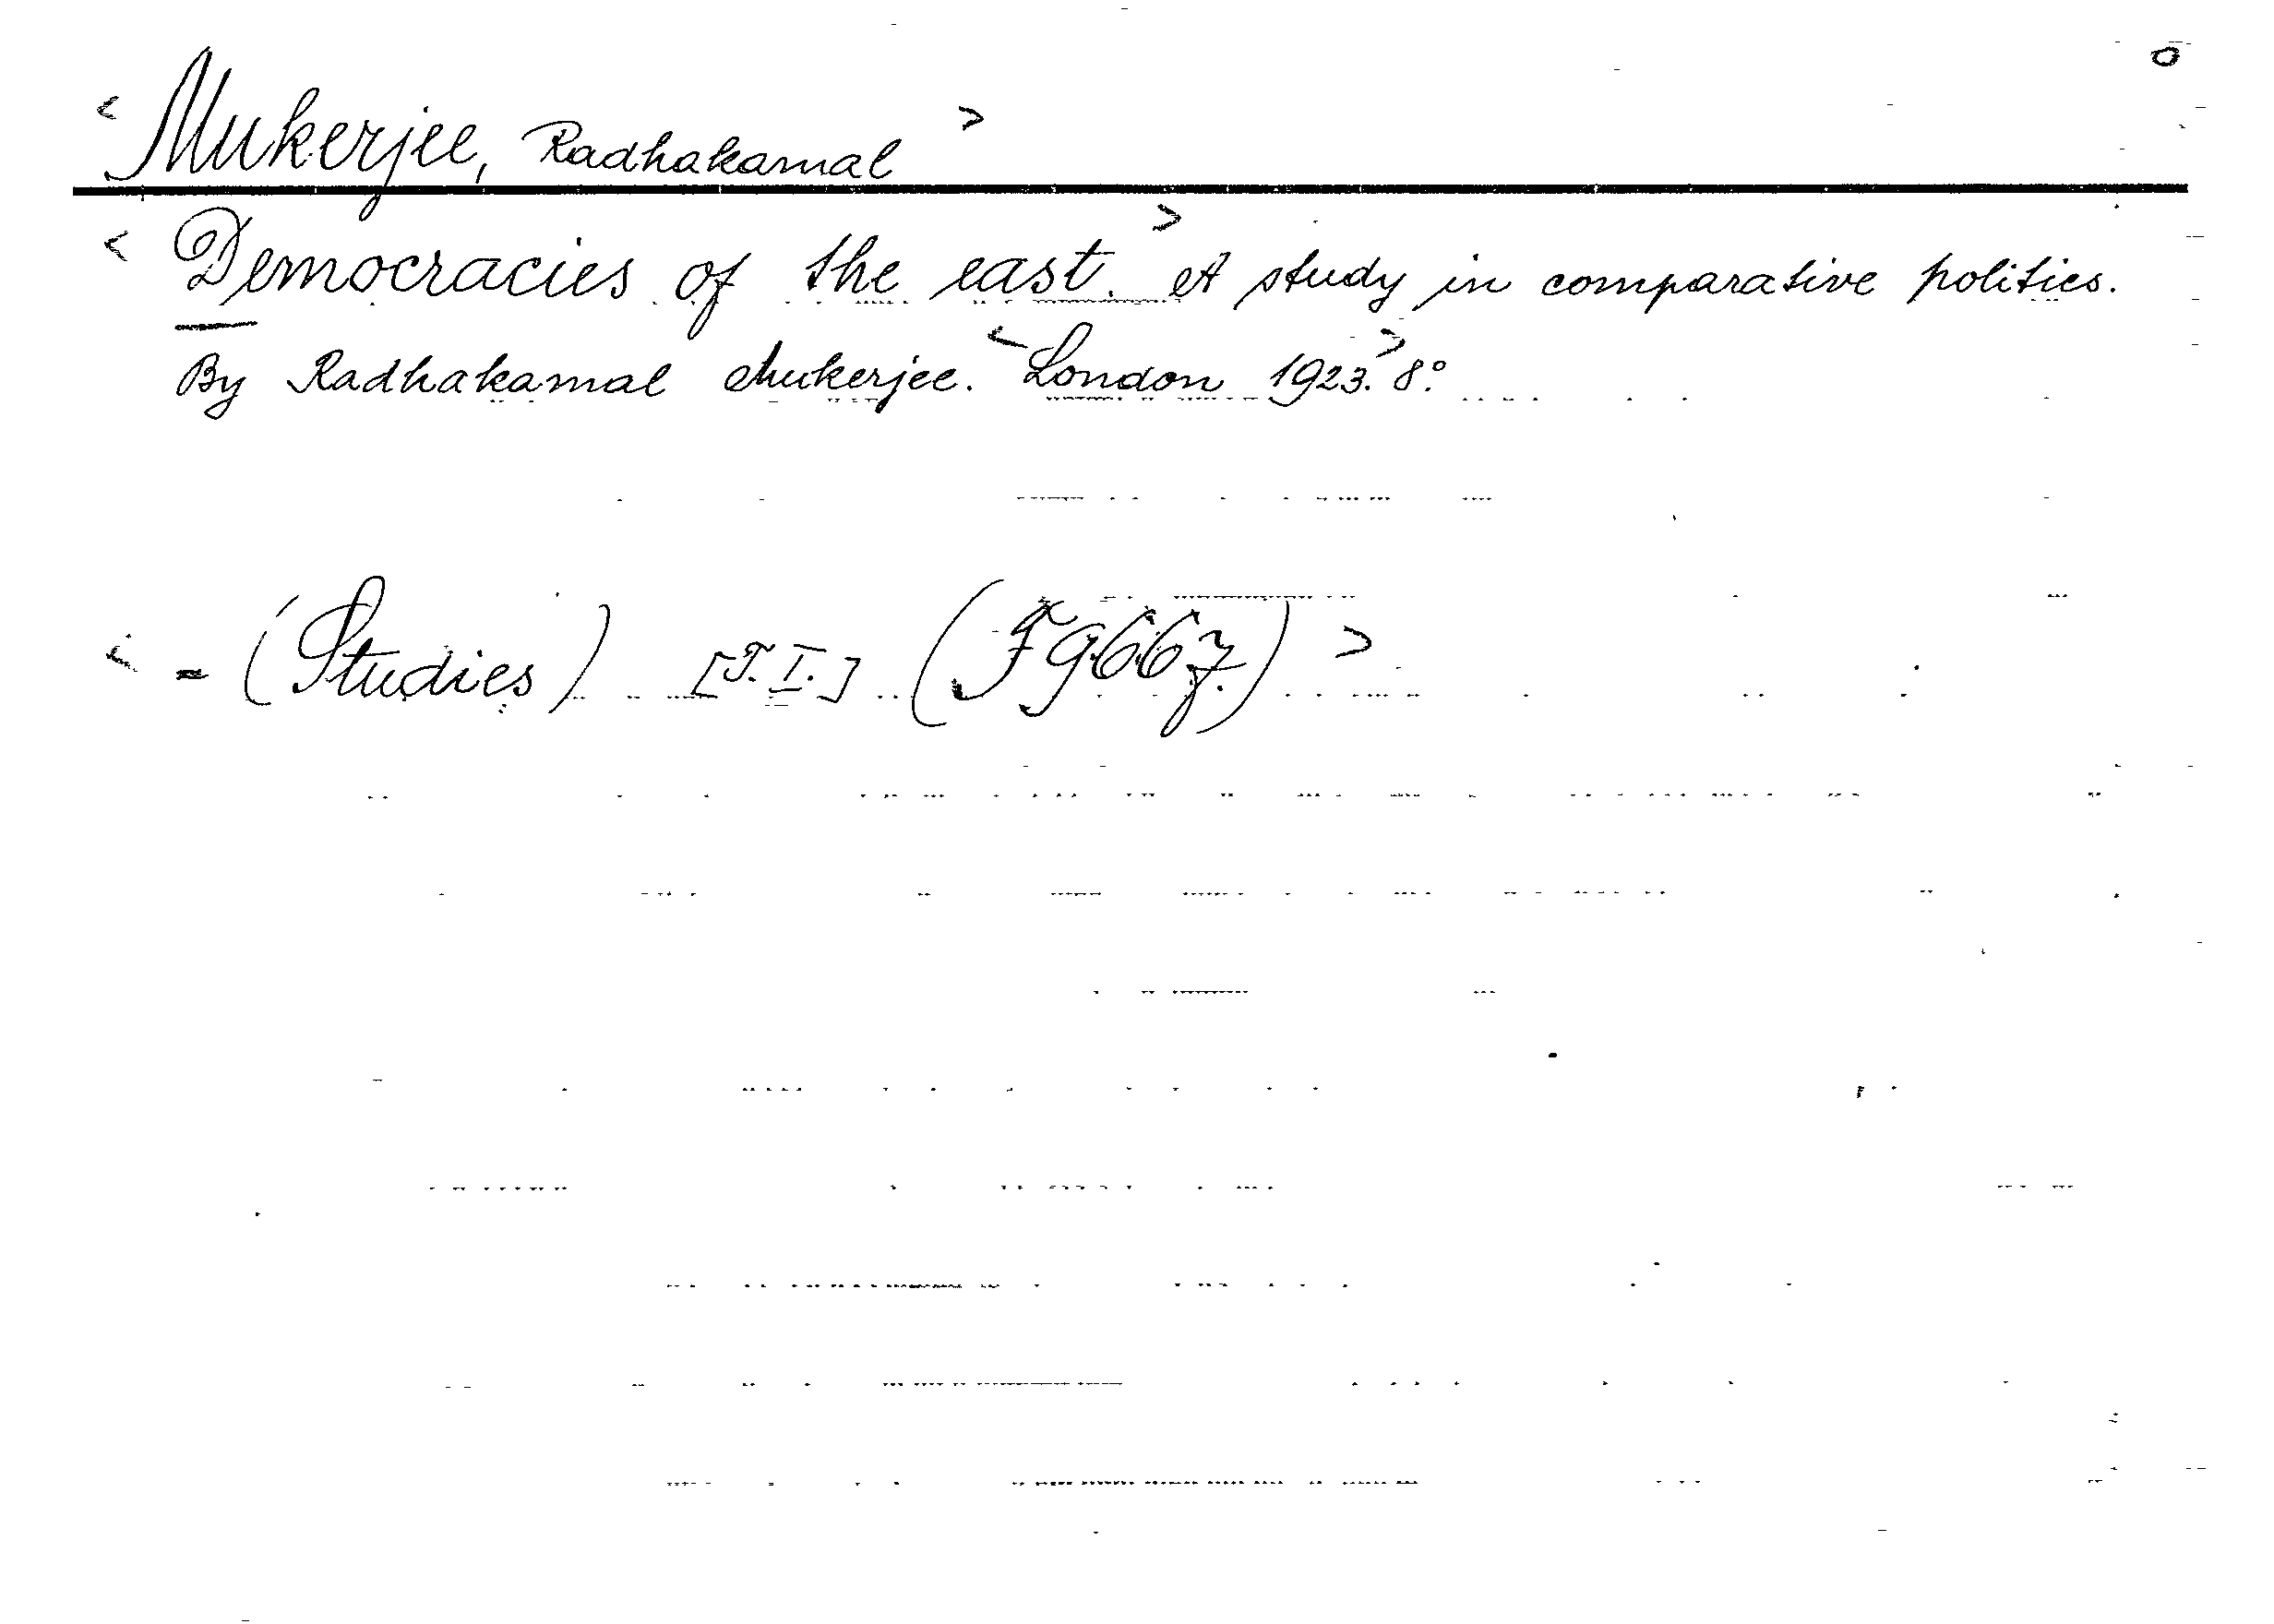 o
< Mukerjee, Radhakamal >
< Democracies of the east. > A study in comparative politics.
By Radhakamal Mukerjee. < London 1923. > 8°.
< = (Studies) [T. I.] (F9667.) >